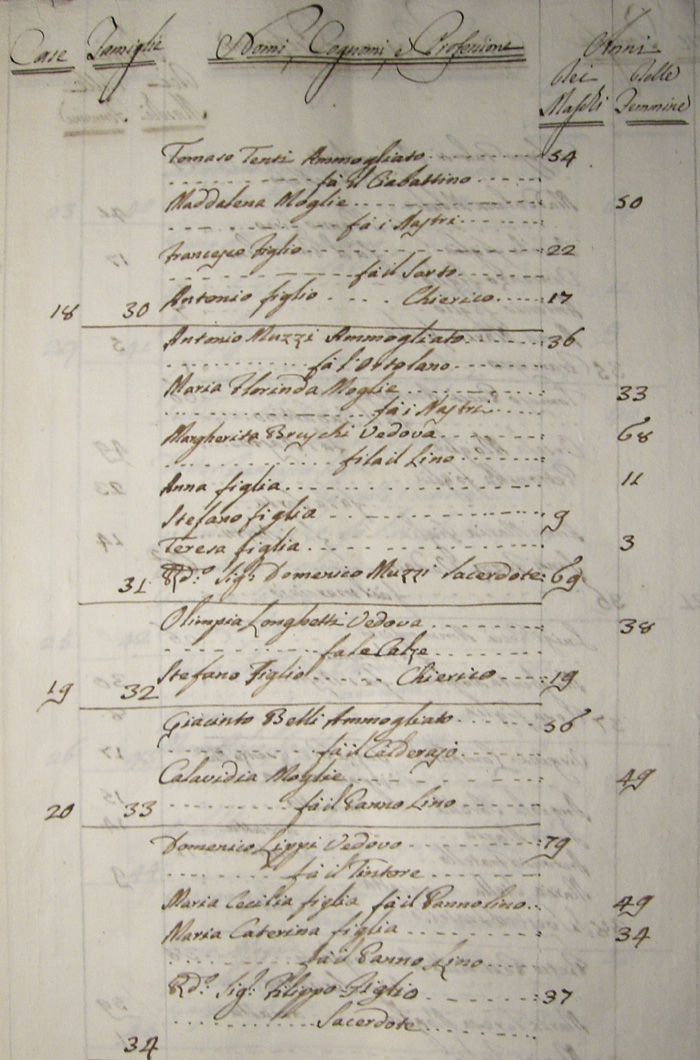 Case Famiglie Nomi, Cognomi, e Professione Anni
dei delle
Maschi Femmine
Tomaso Tenti Ammogliato 54
fà il Ciabattino
Maddalena Moglie 50
fà i Nastri
Francesco figlio 22
fà il Sarto
18 30 Antonio figlio Chierico 17
Antonio Muzzi Ammogliato 36
fà l'Ortolano
Maria Florinda Moglie 33
fà i Nastri
Margherita Bruschi Vedova 68
fila il Lino
Anna figlia 11
Stefano figlia 9
Teresa figlia 3
31 Rd.º Sigr. Domenico Muzzi Sacerdote 69
Olimpia Longhetti Vedova 38
fa le Calze
19 32 Stefano Figlio Chierico 19
Giacinto Belli Ammogliato 36
fà il Calderajo
Calavidia Moglie 49
20 33 fà il Panno Lino
Domenico Lippi Vedovo 79
fà il Tintore
Maria Cecilia figlia fà il Pannolino 49
Maria Caterina figlia 34
fà il Panno Lino
Rd.º Sigr. Filippo Figlio 37
Sacerdote
34